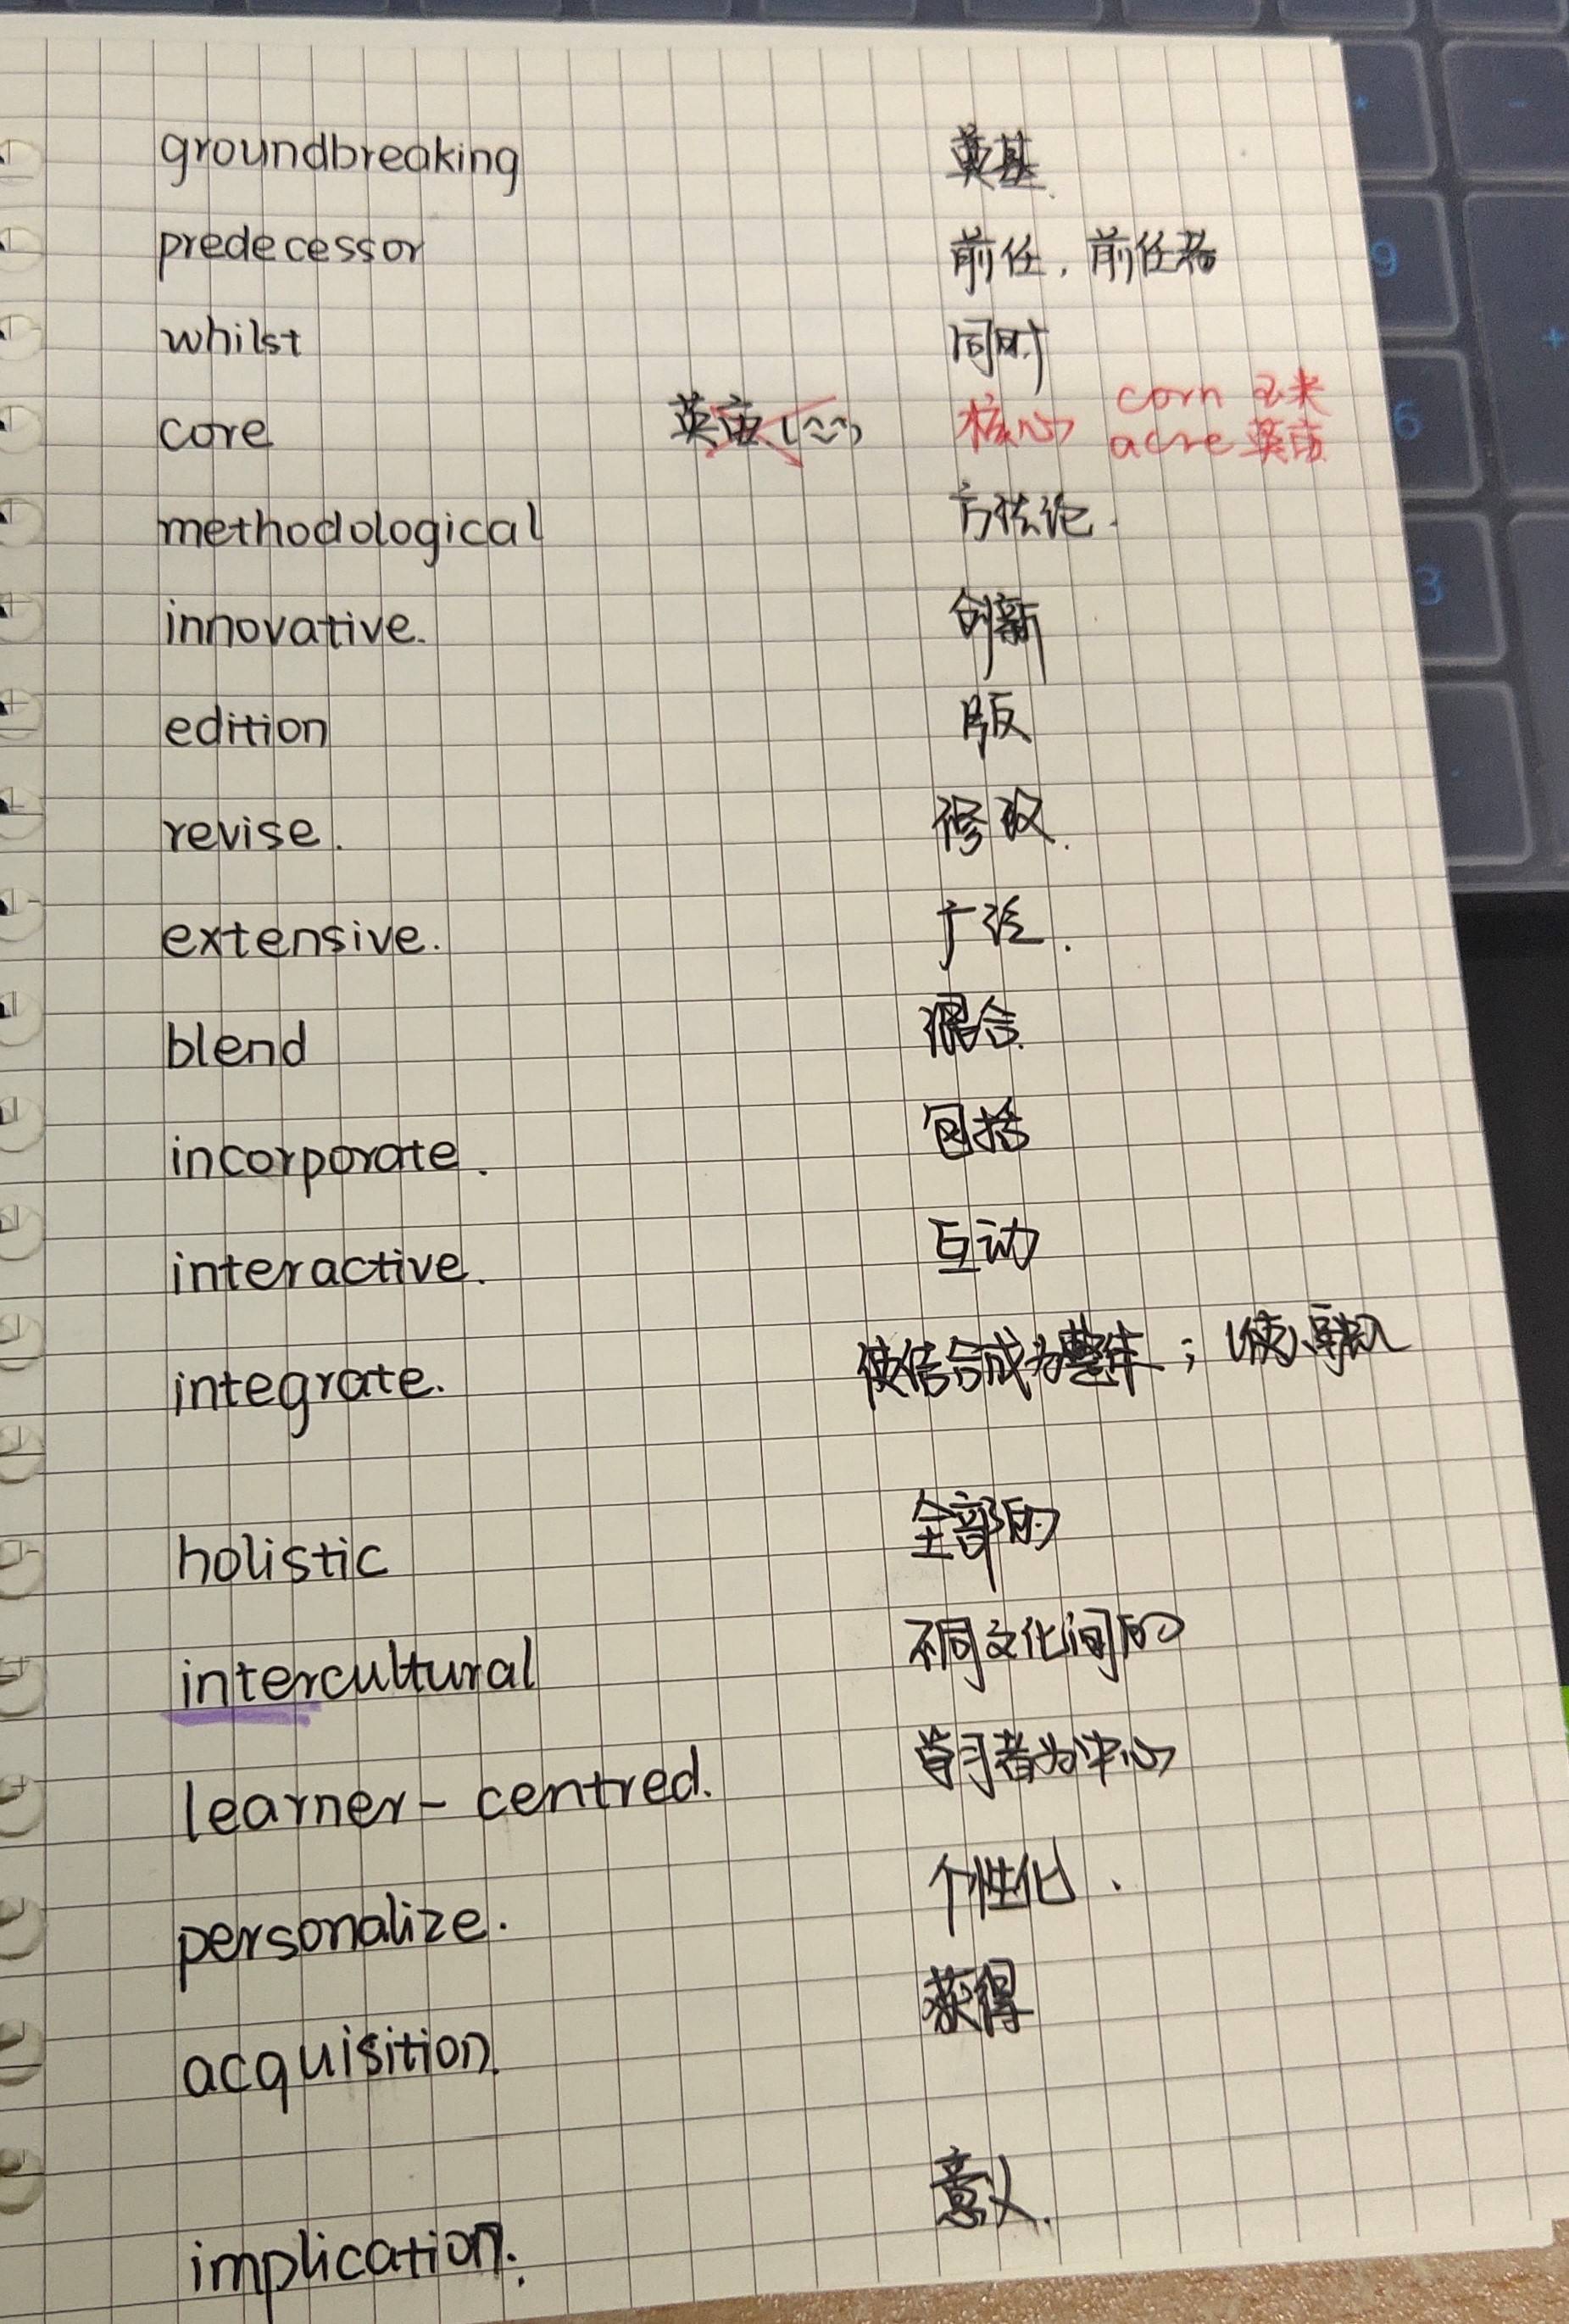 groundbreaking 奠基.
predecessor 前任, 前任者
whilst 同时
corn 玉米
core 英亩 (~~) 核心 acre 英亩
methodological 方法论.
innovative. 创新
edition 版
revise. 修改.
extensive. 广泛.
blend 混合.
incorporate. 包括
interactive. 互动
integrate. 使结合成为整体; (使)融入
holistic 全部的
intercultural 不同文化间的
learner-centred. 学习者为中心
personalize. 个性化.
acquisition. 获得
implication. 意义.
* -
9
+
6
3